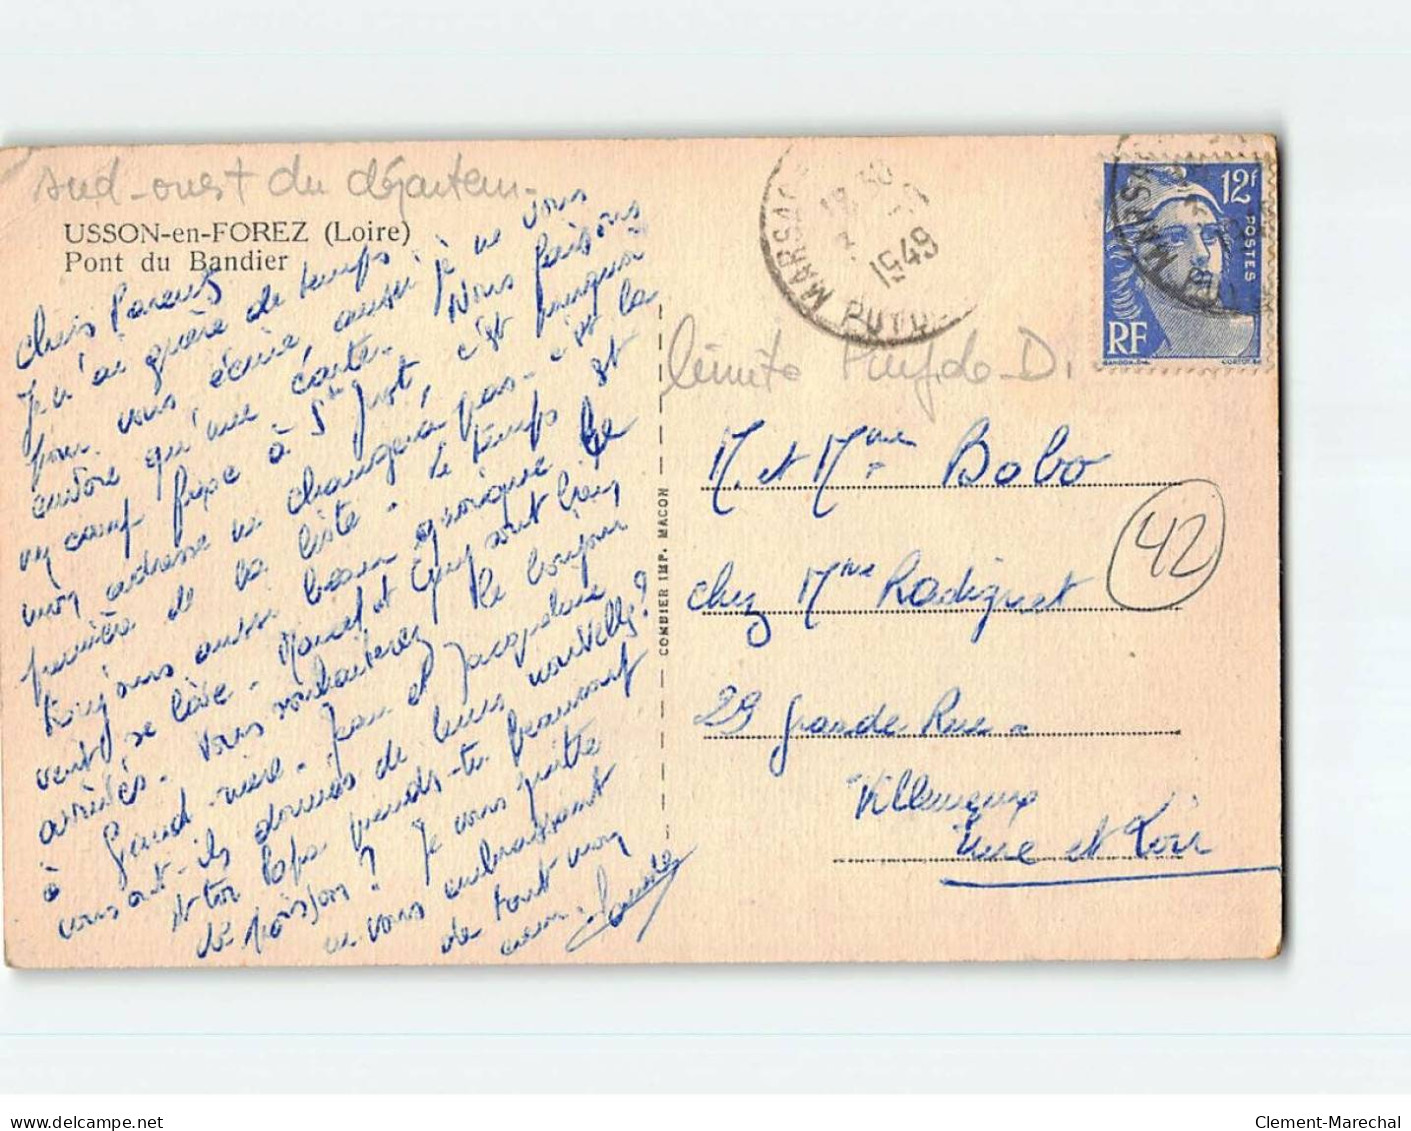 sud-ouest du départem-
USSON-en-FOREZ (Loire)
Pont du Bandier
Chers Parents
Je n'ai guère de temps
pour vous écrire, aussi je ne vous
envoie qu'une carte. Nous faisons
un camp fixe à St Just, c'est pourquoi
mon adresse ne changera pas - c'est la
première de la liste - le temps est
toujours aussi beau quoique le
vent se lève - Marcel et Guy sont bien
arrivés - Vous souhaiterez le bonjour
à Grand-mère - Jean et Jacqueline
vous ont-ils donnés de leurs nouvelles?
et toi Papa prends-tu beaucoup
de poisson? Je vous quitte
en vous embrassant
de tout mon
cœur.
COMBIER IMP. MACON
MARSAC
18 30
1949
PUY-D
12f
POSTES
RF
MARSAC
limite Puy de D.
M. et Mme Bobo
chez Mme Radiguet
29 Grande Rue
Villemeux
Eure et Loir
42
www.delcampe.net
Clement-Marechal